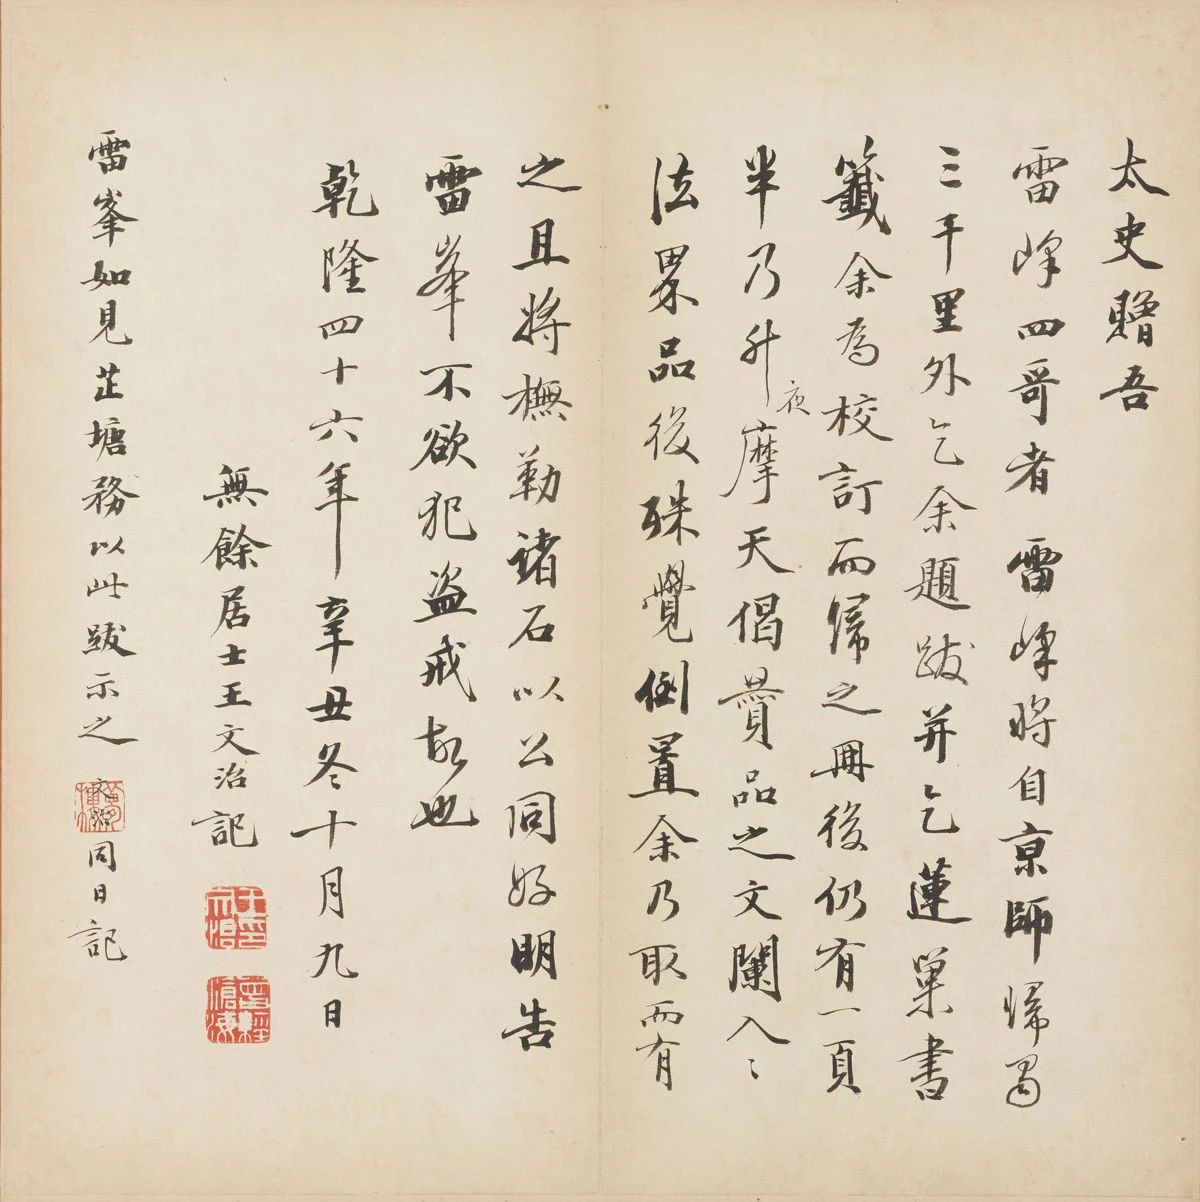 太史贈吾
雷峰四哥者雷峰將自京師歸蜀
三千里外乞余題跋并乞蓮巢書
籤余為校訂而歸之冊後仍有一頁
半乃升夜摩天偈贊品之文闌入〻
法界品後殊覺倒置余乃取而有
之且將橅勒諸石以公同好明告
雷峯不欲犯盜戒故也
乾隆四十六年辛丑冬十月九日
無餘居士王文治記
雷峯如見芷塘務以此跋示之文治同日記